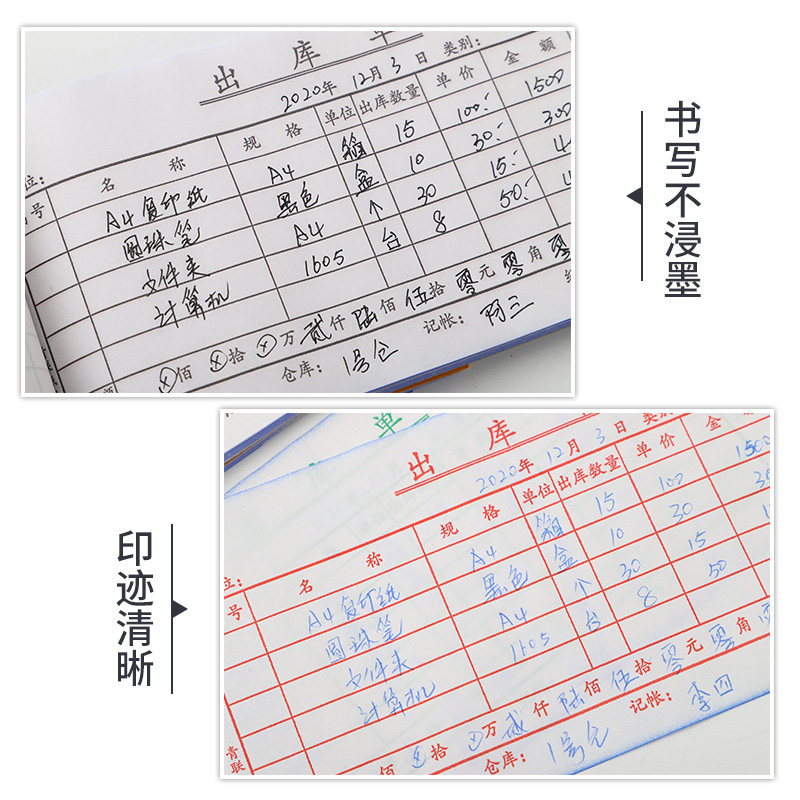 出 库 单
2020年 12月 3日 类别:
名 称 规 格 单位 出库数量 单 价 金 额
A4复印纸 A4 箱 15 100.- 1500
圆珠笔 黑色 盒 10 30.- 300
文件夹 A4 个 30 15.-
计算机 1605 台 8 50.-
⊗佰⊗拾⊗万贰仟陆佰伍拾零元零角零
仓库: 1号仓 记帐: 阿三
书写不浸墨
单
出 库
2020年 12月 3日 类别
位:
号 名 称 规 格 单位 出库数量 单 价 金 额
A4复印纸 A4 箱 15 100 1500
圆珠笔 黑色 盒 10 30
文件夹 A4 个 30 15
计算机 1605 台 8 50
佰⊗拾⊗万贰仟陆佰伍拾零元零角
仓库: 1号仓 记帐: 李四
青联
印迹清晰